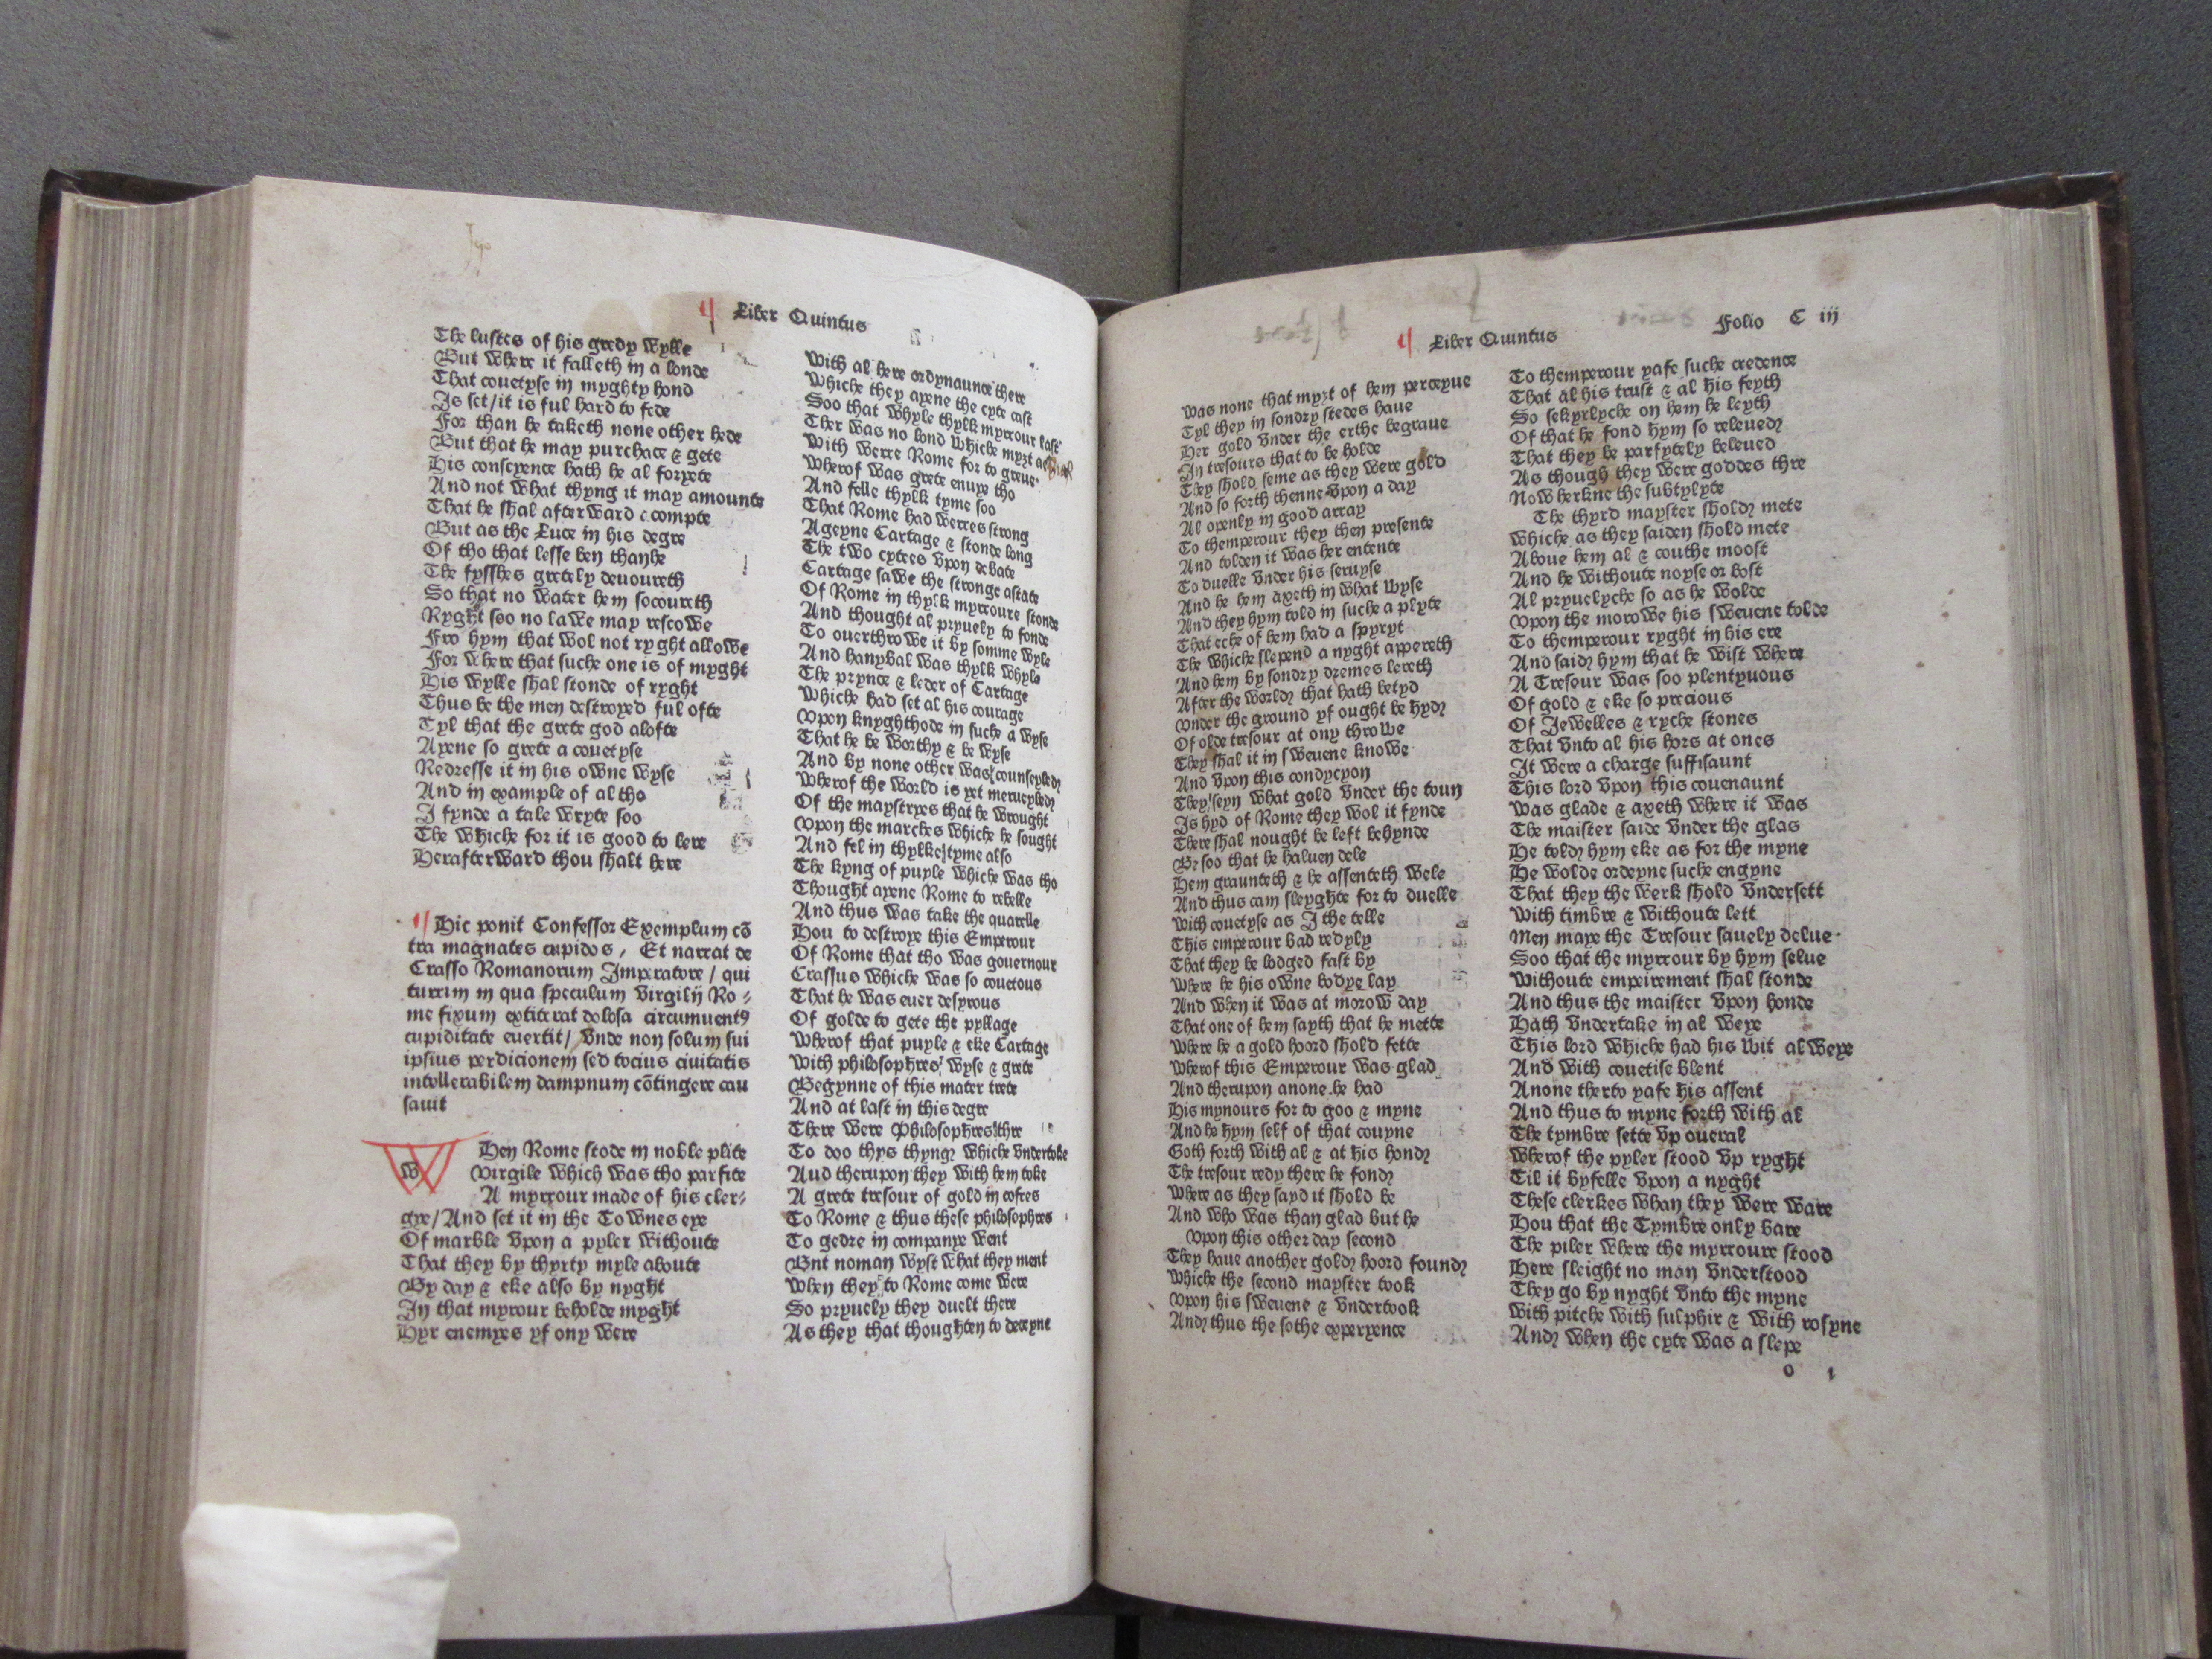 Liber Quintus
The lustes of his gredy wylle
But where it falleth in a londe
That couetyse in myghty hond
Is set/it is ful hard to fede
For than he taketh none other hede
But that he may purchace & gete
His conscyence hath he al foryete
And not what thyng it may amounte
That he shal afterward compte
But as the Luce in his degre
Of tho that lesse ben than he
The fysshes gretely deuoureth
So that no water hem socoureth
Ryght soo no lawe may rescowe
Fro hym that wol not ryght allowe
For where that suche one is of myght
His wylle shal stonde of ryght
Thus be the men destroyed ful ofte
Tyl that the grete god alofte
Ayene so grete a couetyse
Redresse it in his owne wyse
And in example of al tho
I fynde a tale wryte soo
The whiche for it is good to lere
Herafterward thou shalt here
Hic ponit Confessor Exemplum cō
tra magnates cupidos, Et narrat de
Crasso Romanorum Imperatore / qui
turrim in qua speculum virgilij Ro⸗
me fixum extiterat dolosa circumuentꝰ
cupiditate euertit/ vnde non solum sui
ipsius perdicionem sed tocius ciuitatis
intollerabilem dampnum cōtingere cau
sauit
w Hen Rome stode in noble plite
virgile which was tho parfite
A myrrour made of his cler⸗
gye/And set it in the Townes eye
Of marble vpon a pyler withoute
That they by thyrty myle aboute
By day & eke also by nyght
In that myrrour beholde myght
Hyr enemyes yf ony were
with al here ordynaunce there
whiche they ayene the cyte cast
Soo that whyle thylk myrrour last
Ther was no lond whiche myzt
with werre Rome for to greue
wherof was grete enuye tho
And felle thylk tyme soo
That Rome had werres strong
Ageyne Cartage & stonde long
The two cytees vpon debate
Cartage sawe the stronge astate
Of Rome in thylk myrroure stonde
And thought al pryuely to fonde
To ouerthrowe it by somme wyle
And hanybal was thylk whyle
The prynce & leder of Cartage
whiche had set al his courage
vpon knyghthode in suche a wyse
That he be worthy & be wyse
And by none other was counseyled
wherof the world is yet merueyled
Of the maystryes that he wrought
vpon the marches whiche he sought
And fel in thylke tyme also
The kyng of puyle whiche was tho
Thought ayene Rome to rebelle
And thus was take the quarelle
Hou to destroye this Emperour
Of Rome that tho was gouernour
Crassus whiche was so couetous
That he was euer desyrous
Of golde to gete the pyllage
wherof that puyle & eke Cartage
with philosophres wyse & grete
Begynne of this mater trete
And at last in this degre
There were Philosophres thre
To doo thys thyng whiche vndertoke
Aud therupon they with hem toke
A grete tresour of gold in cofres
To Rome & thus these philosophres
To gedre in companye went
Bnt noman wyst what they ment
when they to Rome come were
So pryuely they duelt there
As they that thoughten to deceyue
Liber Quintus
Folio C iij
was none that myzt of hem perceyue
Tyl they in sondry stedes haue
Her gold vnder the erthe begraue
In tresours that to be holde
They shold seme as they were gold
And so forth thenne vpon a day
Al openly in good array
To themperour they then presente
And tolden it was her entente
To duelle vnder his seruyse
And he hem axeth in what wyse
And they hym told in suche a plyte
That eche of hem had a spyryt
The whiche slepend a nyght appereth
And hem by sondry dremes lereth
After the world that hath betyd
vnder the ground yf ought be hyd
Of olde tresour at ony throwe
They shal it in sweuene knowe
And vpon this condycyon
They seyn what gold vnder the toun
Is hyd of Rome they wol it fynde
There shal nought be left behynde
By soo that he haluen dele
Hem graunteth & he assenteth wele
And thus cam sleyghte for to duelle
with couetyse as I the telle
This emperour bad redyly
That they be lodged fast by
where he his owne bodye lay
And when it was at morow day
That one of hem sayth that he mette
where he a gold hoord shold fette
wherof this Emperour was glad
And therupon anone he had
His mynours for to goo & myne
And he hym self of that couyne
Goth forth with al & at his hond
The tresour redy there he fond
where as they sayd it shold be
And who was than glad but he
vpon this other day second
They haue another gold hoord found
whiche the second mayster took
vpon his sweuene & vndertook
And thus the sothe experyence
To themperour yafe suche credence
That al his trust & al his feyth
So sekyrlyche on hem he leyth
Of that he fond hym so releued
That they be parfytely beleued
As though they were goddes thre
Now herkne the subtylyte
The thyrd mayster shold mete
whiche as they saiden shold mete
Aboue hem al & couthe moost
And he withoute noyse or bost
Al pryuelyche so as he wolde
vpon the morowe his sweuene tolde
To themperour ryght in his ere
And said hym that he wist where
A Tresour was soo plentyuous
Of gold & eke so precious
Of Jewelles & ryche stones
That vnto al his hors at ones
It were a charge suffisaunt
This lord vpon this couenaunt
was glade & axeth where it was
The maister saide vnder the glas
He told hym eke as for the myne
He wolde ordeyne suche engyne
That they the werk shold vndersett
with timbre & withoute lett
Men maye the Tresour sauely delue
Soo that the myrrour by hym selue
withoute empeirement shal stonde
And thus the maister vpon honde
Hath vndertake in al weye
This lord whiche had his wit alweye
And with couetise blent
Anone therto yafe his assent
And thus to myne forth with al
The tymbre sette vp oueral
wherof the pyler stood vp ryght
Til it byfelle vpon a nyght
These clerkes whan they were ware
Hou that the Tymbre only bare
The piler where the myrroure stood
Here sleight no man vnderstood
They go by nyght vnto the myne
with pitche with sulphir & with rosyne
And when the cyte was a slepe
o 1